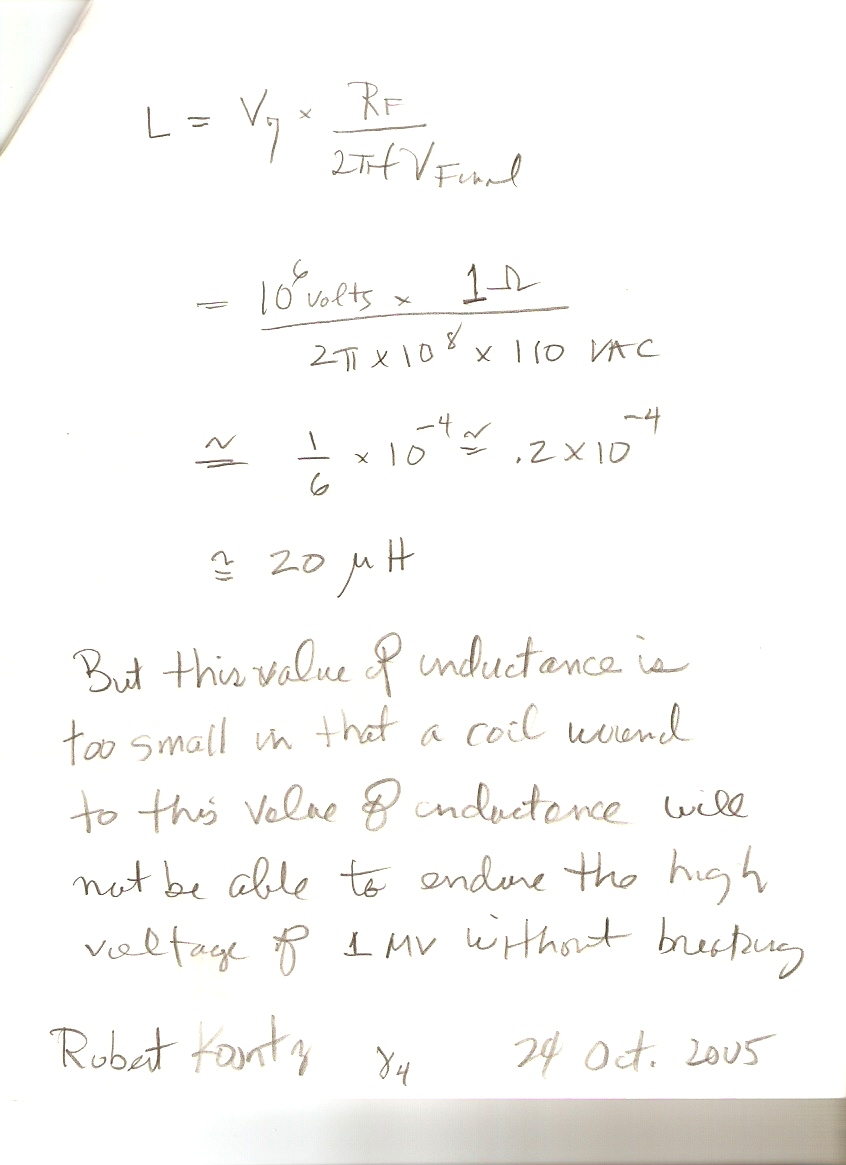 L = V₇ × R_F / 2πf V_Final
= 10⁶ volts × 1Ω / 2π × 10⁸ × 110 VAC
≅ 1/6 × 10⁻⁴ ≅ .2 × 10⁻⁴
≅ 20 μH
But this value of inductance is
too small in that a coil wound
to this value of inductance will
not be able to endure the high
voltage of 1 MV without breaking
Robert Koontz γ4 24 Oct. 2005